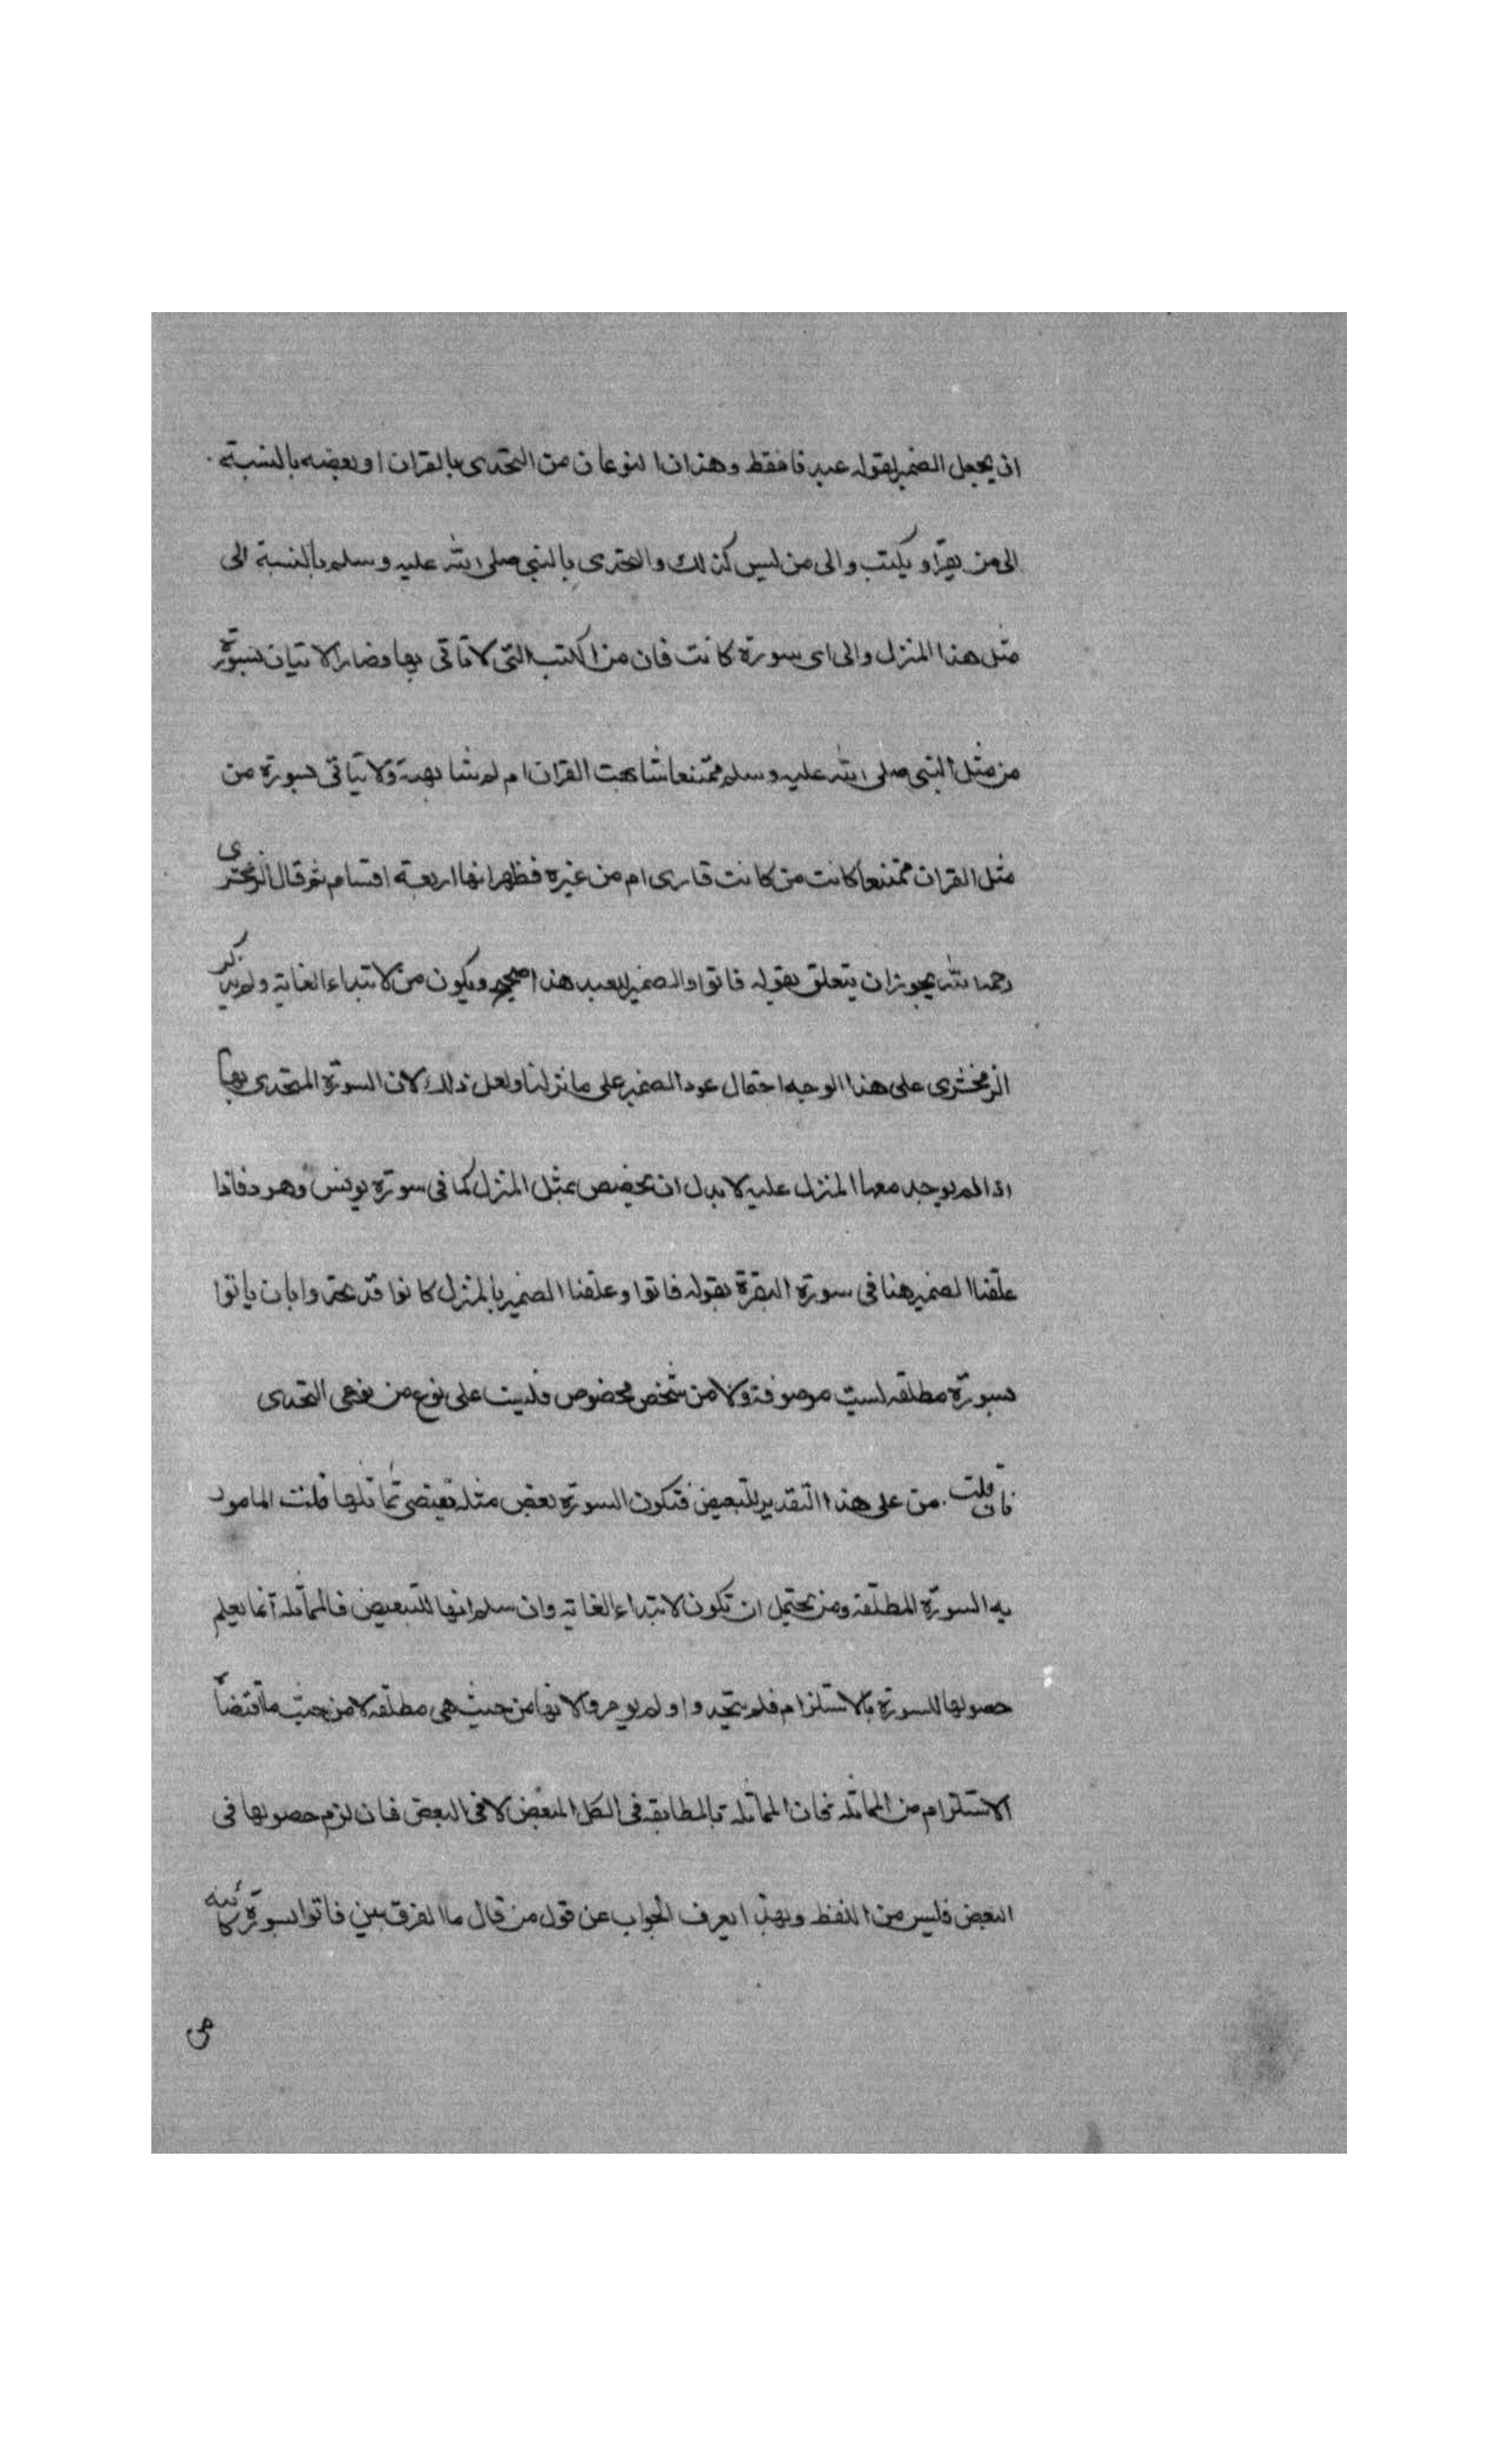 ان يجعل الضمير لقوله عبدنا فقط وهذان النوعان من التحدى بالقران او بعضه بالنسبة
الى من يقرأ ويكتب والى من ليس كذلك والتحدى بالنبى صلى الله عليه وسلم بالنسبة الى
مثل هذا المنزل والى اى سورة كانت فان من الكتب التى لا تاتى بها وصار الاتيان بسورة
من مثل النبى صلى الله عليه وسلم ممتنعا شابهت القران ام لم تشابهه ولا يتاتى بسورة من
مثل القران ممتنعا كانت من كانت قارى ام من غيره فظهر انها اربعة اقسام ثم قال الزمخشرى
رحمه الله يجوز ان يتعلق بقوله فاتوا والضمير للعبد هذا صحيح ويكون من لابتداء الغاية ولم يذكر
الزمخشرى على هذا الوجه احتمال عود الضمير على ما نزلنا ولعل ذلك لان السورة المتحدى بها
اذا لم يوجد معها المنزل عليه لا بدل ان يخصص بمثل المنزل كما فى سورة يونس وهود فاذا
علقنا الضمير هنا فى سورة البقرة بقوله فاتوا وعلقنا الضمير بالمنزل كانوا قد تحدوا بان ياتوا
بسورة مطلقه ليست موصوفة ولا من شخص مخصوص فليست على نوع من نوعى التحدى
فان قلت من على هذا التقدير للتبعيض فتكون السورة بعض مثله يقتضى تماثلها قلت المامور
به السورة المطلقة ومن يحتمل ان تكون لابتداء الغاية وان سلم انها للتبعيض فالمماثلة انما يعلم
حصولها للسورة بالاستلزام فلم يتحدوا ولم يومروا الا بها من حيث هى مطلقه لا من حيث ما اقتضاه
الاستلزام من المماثله فان المماثلة بالمطابقه فى الكل المبعض لا فى البعض فان لزم حصولها فى
البعض فليس من اللفظ وبهذا يعرف الجواب عن قول من قال ما الفرق بين فاتوا بسورة كائنه